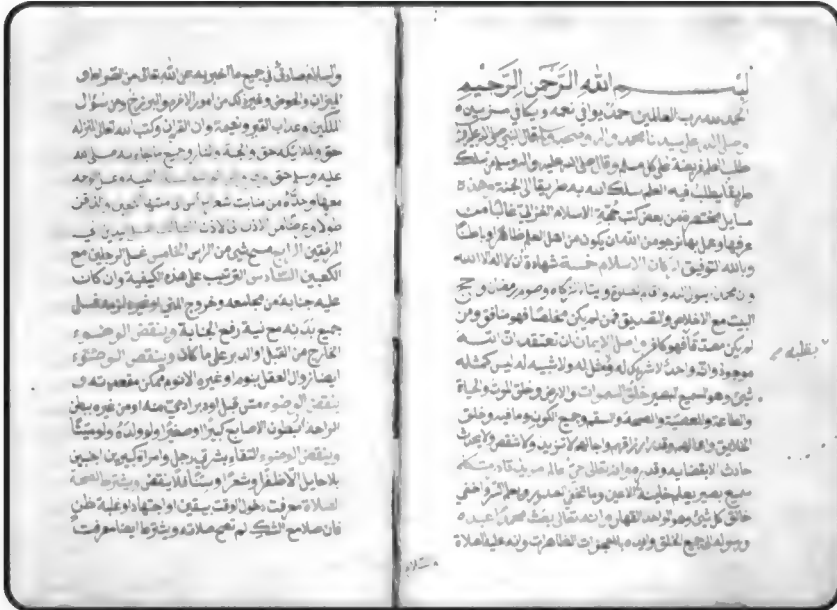 بسم الله الرحمن الرحيم
الحمد لله رب العالمين حمدا يوافي نعمه ويكافي مزيده
وصلى الله على سيدنا محمد واله وصحبه قال النبي
طلب العلم فريضة على كل مسلم وقال صلى الله عليه واله وسلم من سلك
طريقا يطلب فيه العلم سلك الله به طريقا الى الجنة وهذه
مسايل مختصرة من بعض كتب حجة الاسلام الغزالي غالبا من
عرفها وعمل بها نرجو من الله ان يكون من اهل العلم ظاهرا وباطنا
وبالله التوفيق اركان الاسلام خمسة شهادة ان لا اله الا الله
وان محمدا رسول الله واقام الصلوة وايتاء الزكاه وصوم رمضان وحج
البيت مع الاخلاص والتصديق فمن لم يكن مخلصا فهو منافق ومن
لم يكن مصدقا فهو كافر واصل الايمان ان تعتقد ان الله
موجود وانه واحد لا شريك له ولا مثل له ولا شبيه له ليس كمثله
شئ وهو السميع البصير خلق السموات والارض وخلق الموت والحياة
والطاعة والمعصية والصحة والسقم وجميع الكون وما فيه وخلق
الخلائق واعمالهم وقدر ارزاقهم واجالهم لا تزيد ولا تنقص لا يحدث
حادث الا بقضايه وقدره وانه تعالى حي عالم مريد قادر متكلم
سميع بصير يعلم خاينة الاعين وما تخفي الصدور ويعلم السر واخفى
خالق كل شئ وهو الواحد القهار وانه تعالى بعث محمدا عبده
ورسوله الى جميع الخلق وايده بالمعجزات الظاهرات وانه عليه الصلاة
والسلام
والسلام صادق في جميع ما اخبر به عن الله تعالى من الصراط و
الميزان والحوض وغير ذلك من امور الاخرة والبرزخ ومن سؤال
الملكين وعذاب القبر ونعيمه وان القران وكتب الله تعالى المنزله
حق والملايكه حق والجنة والنار وجميع ما جاء به صلى الله
عليه وسلم حق
معها وحده من منابت شعر راس الى منتهى اللحيين والذقن
طولا وعرضا من اذن الى الاذن الثالث غسل اليدين الى
المرفقين الرابع مسح شئ من الراس الخامس غسل الرجلين مع
الكعبين السادس الترتيب على هذه الكيفية وان كانت
عليه جنابة من مجامعه وخروج المني او غيره لزمه غسل
جميع بدنه مع نية رفع الجنابة وينقض الوضوء
الخارج من القبل والدبر على ما كان وينقض الوضوء
ايضا زوال العقل بنوم او غيره الا نوم ممكن مقعدته و
ينقض الوضوء مس قبل او دبر ادمي منه او من غيره ببطن
الراحة او بطون الاصابع كبيرا او صغيرا ولو ولده ولو ميتا
وينقض الوضوء التقاء بشرتي رجل وامراة كبيرين اجنبيين
بلا حايل الا ظفرا وشعرا وسنا فلا ينقض ويشترط لصحة
الصلاة معرفت دخول الوقت بيقين او اجتهاد او غلبة ظن
فان صلا مع الشك لم تصح صلاته ويشترط ايضا معرفت